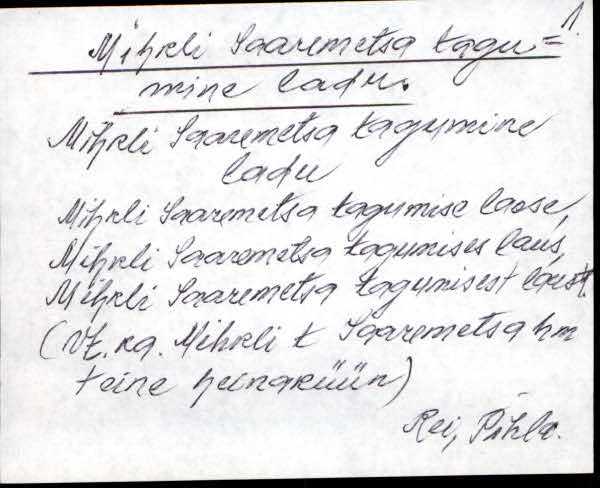 1.
Mihkli Saaremetsa tagu=
mine ladu.
Mihkli Saaremetsa tagumine
ladu
Mihkli Saaremetsa tagumise laose,
Mihkli Saaremetsa tagumises laus,
Mihkli Saaremetsa tagumisest laust.
(Vt. ka. Mihkli t Saaremetsa hm
teine heinaküün)
Rei, Pihla.